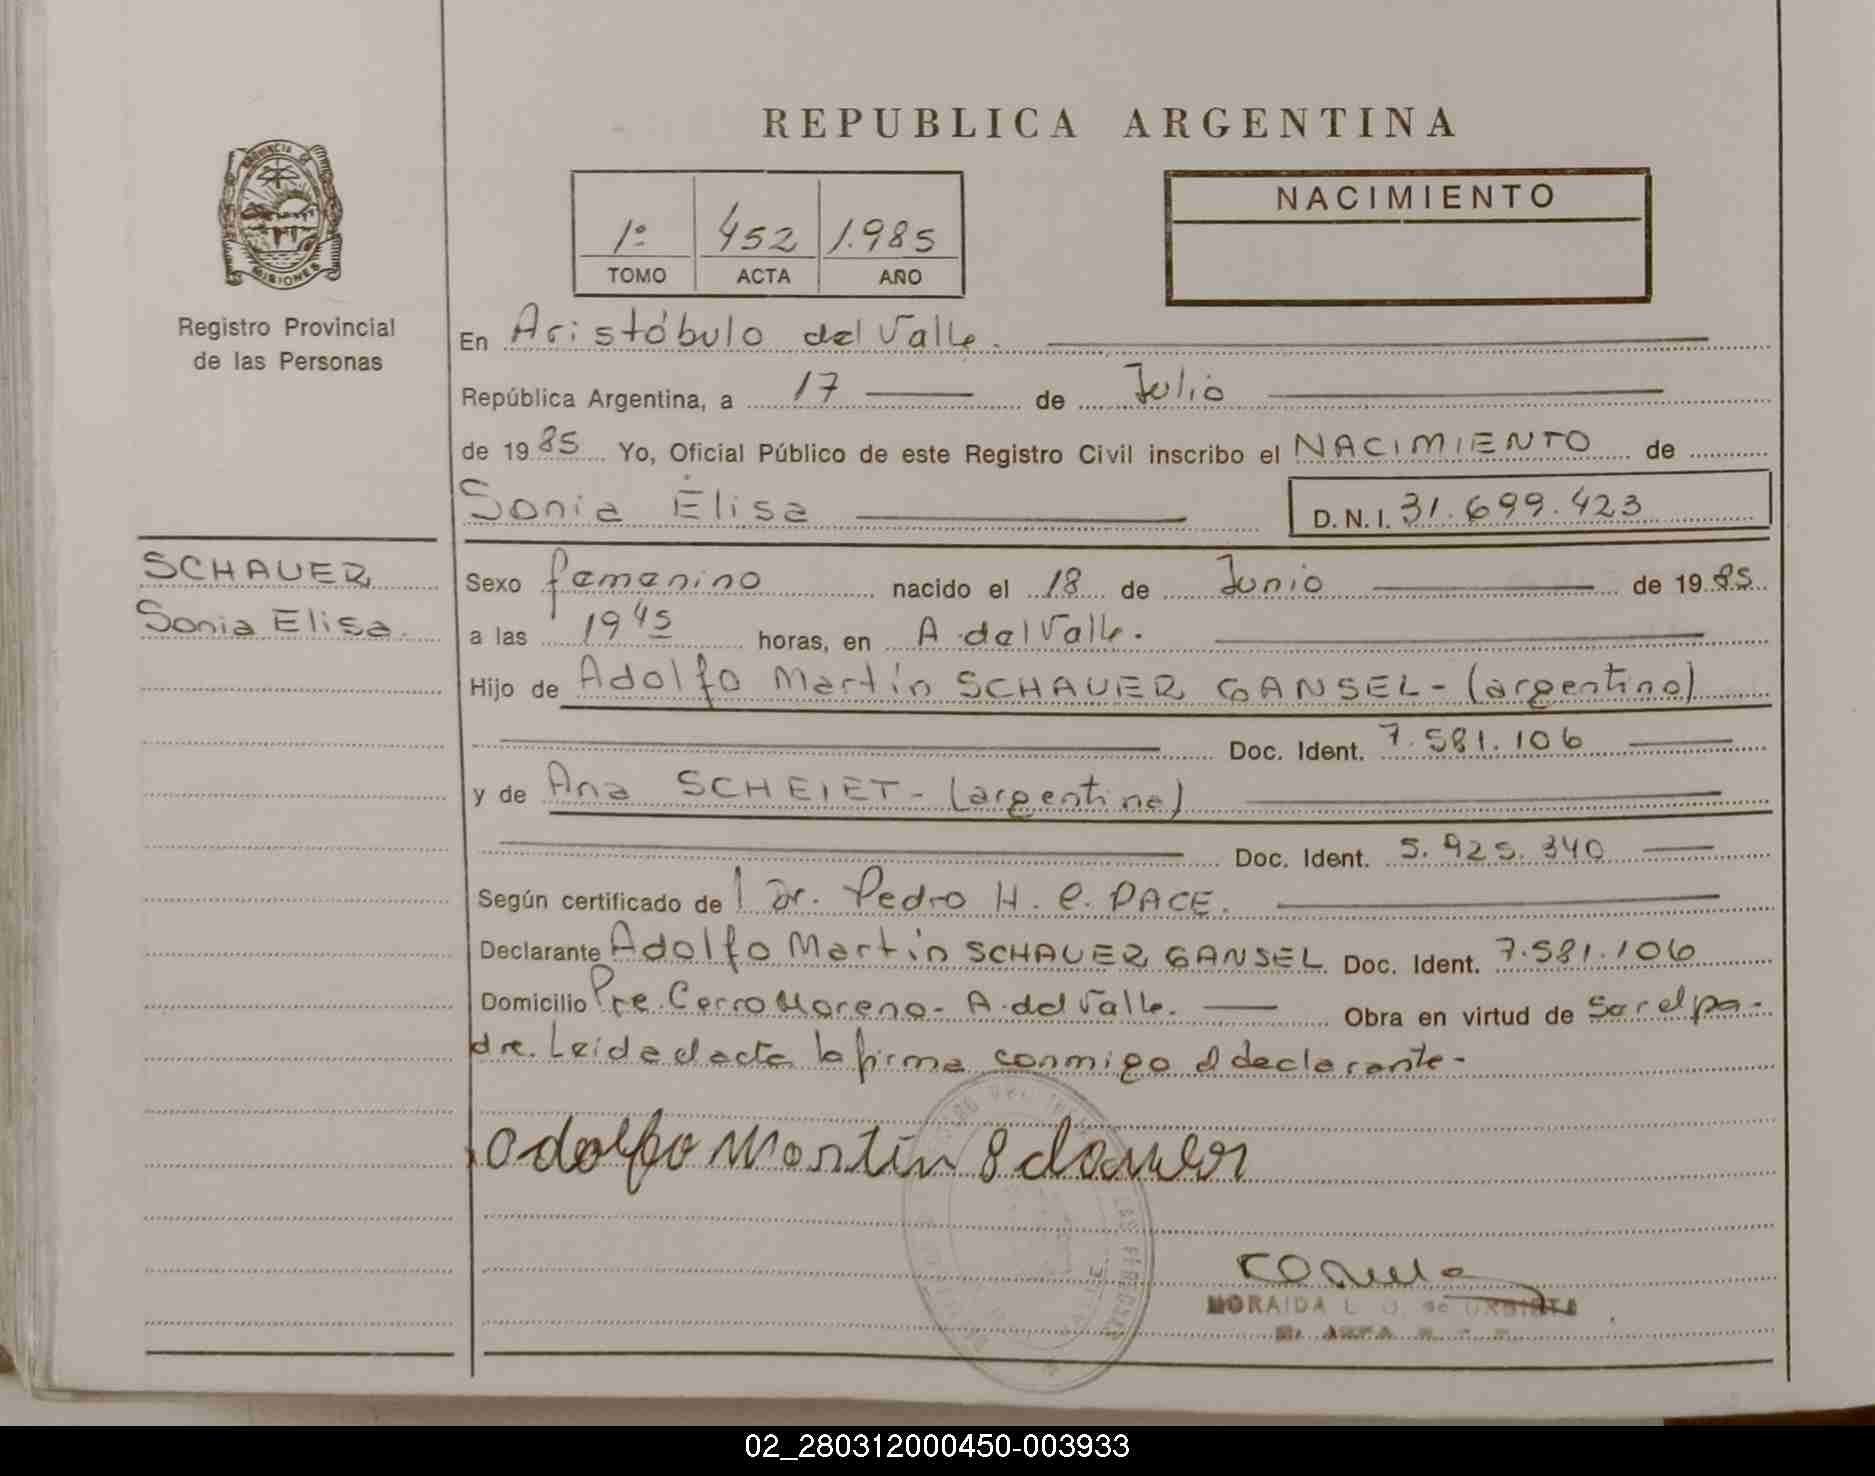 REPUBLICA ARGENTINA
PROVINCIA DE
MISIONES
Registro Provincial
de las Personas
1º 452 1.985
TOMO ACTA AÑO
NACIMIENTO
En Aristóbulo del Valle.
República Argentina, a 17 de Julio
de 1985 Yo, Oficial Público de este Registro Civil inscribo el NACIMIENTO de
Sonia Elisa D.N.I. 31.699.423
SCHAUER
Sonia Elisa.
Sexo femenino nacido el 18 de Junio de 1985
a las 19 45 horas, en A. del Valle.
Hijo de Adolfo Martín SCHAUER GANSEL - (argentino)
Doc. Ident. 7.581.106
y de Ana SCHEIET - (argentina)
Doc. Ident. 5.925.340
Según certificado de Dr. Pedro H. C. PACE.
Declarante Adolfo Martín SCHAUER GANSEL Doc. Ident. 7.581.106
Domicilio Pje. Cerro Moreno - A. del Valle. Obra en virtud de ser el pa-
dre. Leida el acta la firma conmigo el declarante -
Adolfo Martín Schauer
MORAIDA L. de
02_280312000450-003933